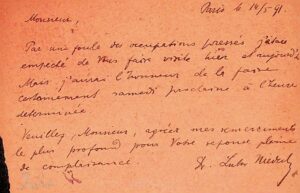 Paris le 14/5 91.
Monsieur,
Par une foule des occupations pressés j'étais
empeché de Vous faire visite hier et aujourd'hui
Mais j'aurai l'honneur de la faire
certainement samedi prochaine à l'heure
determinée
Veuillez, Monsieur, agréer mes remerciements
le plus profond pour Votre reponse pleine
de complaisance.
Dr.